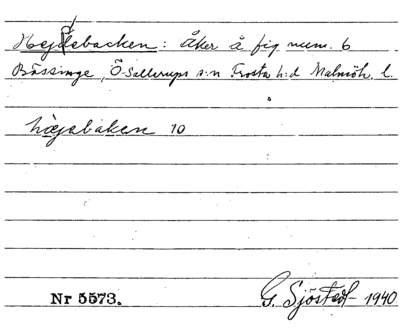 Hejdebacken: Åker å fig num. 6
Bässinge, Ö. Sallerups s:n Frosta h:d Malmöh. l.
hɛjabakɛn 10
Nr 5573.
G. Sjöstedt 1940